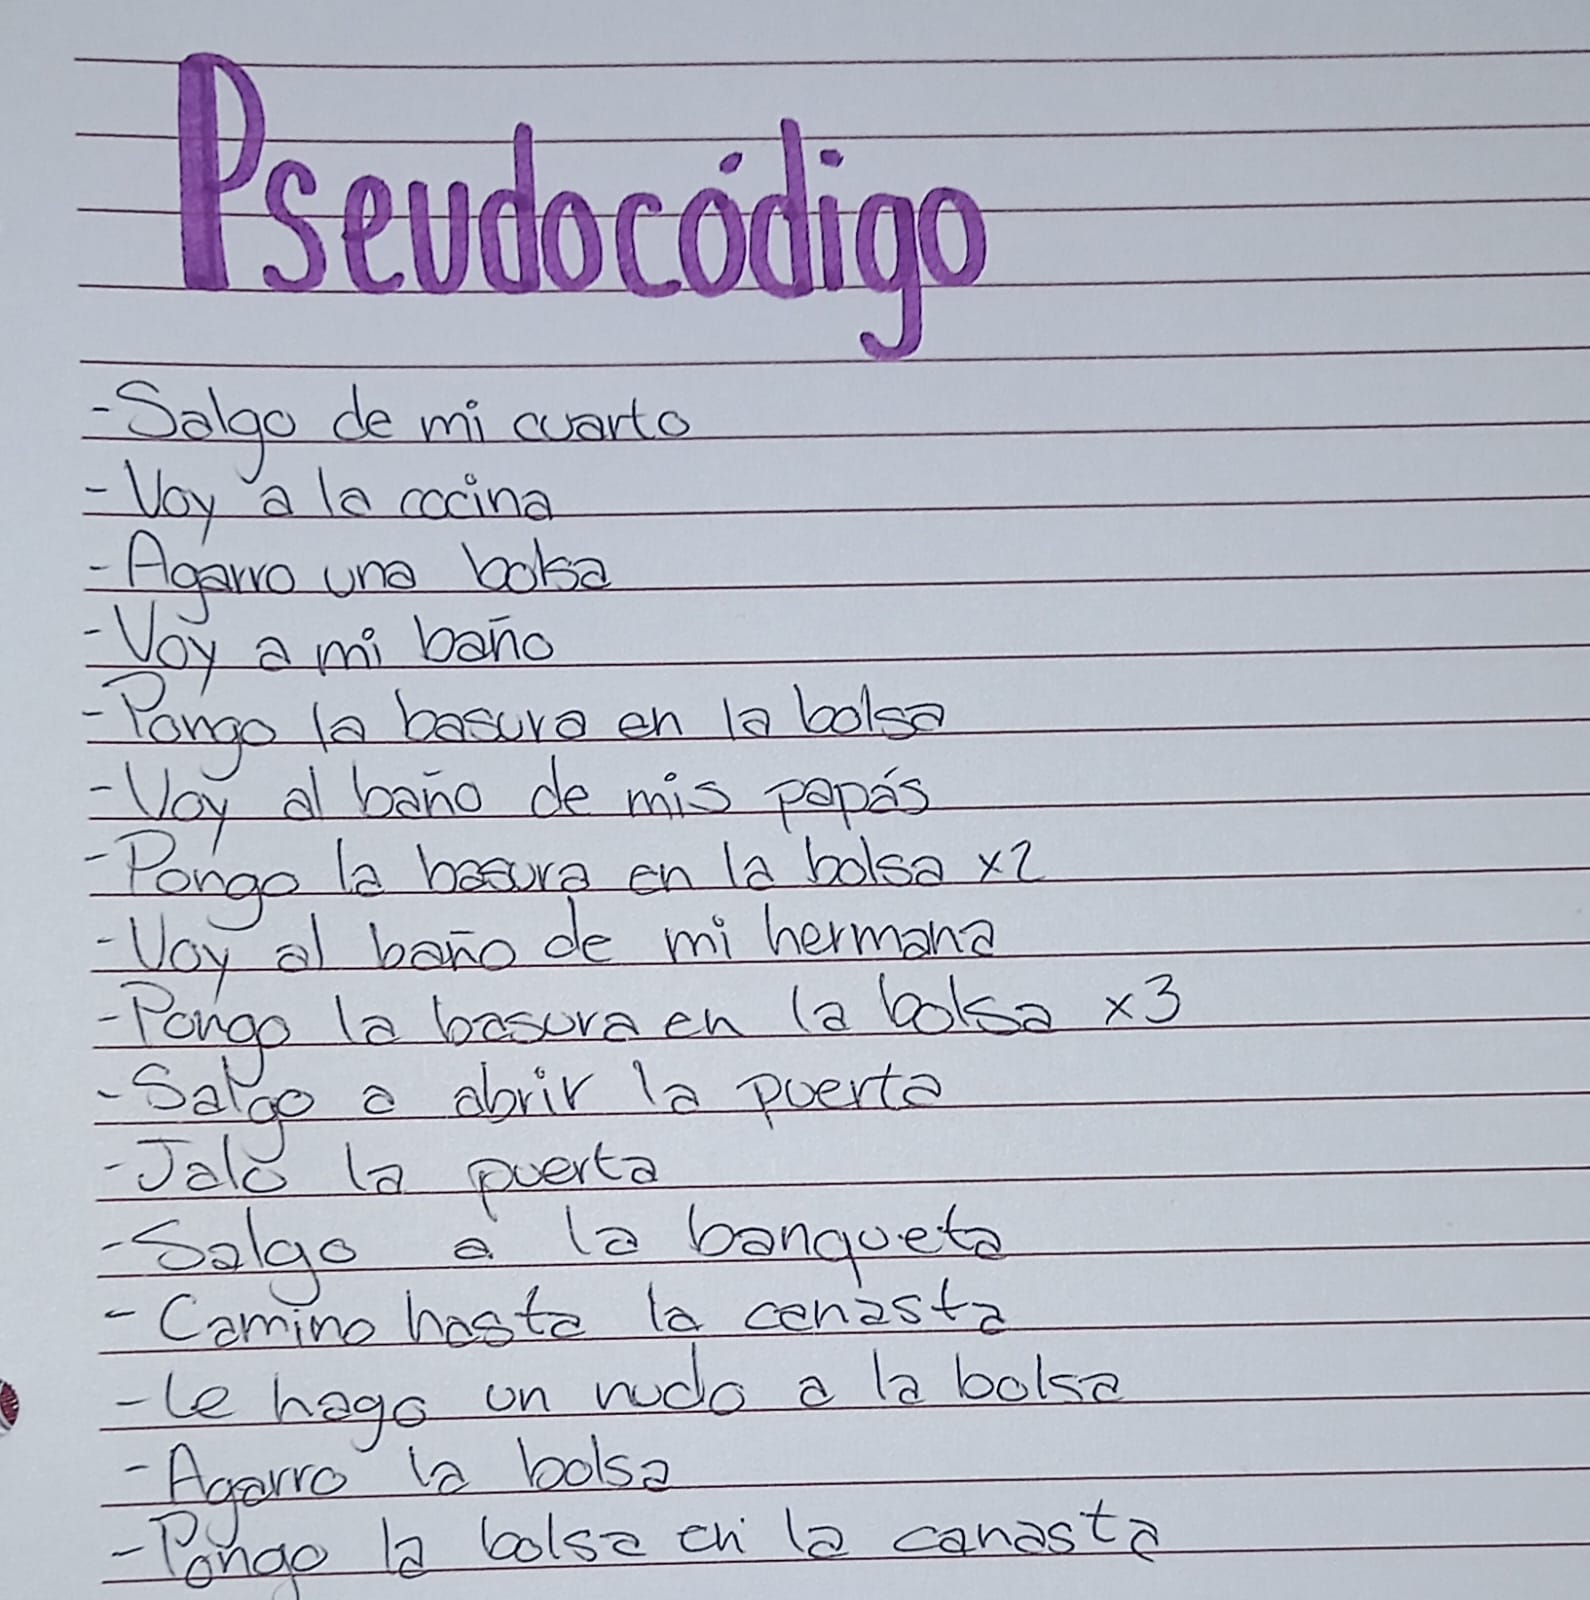 Pseudocódigo
- Salgo de mi cuarto
- Voy a la cocina
- Agarro una bolsa
- Voy a mi baño
- Pongo la basura en la bolsa
- Voy al baño de mis papás
- Pongo la basura en la bolsa x2
- Voy al baño de mi hermana
- Pongo la basura en la bolsa x3
- Salgo a abrir la puerta
- Jalo la puerta
- Salgo a la banqueta
- Camino hasta la canasta
- le hago un nudo a la bolsa
- Agarro la bolsa
- Pongo la bolsa en la canasta